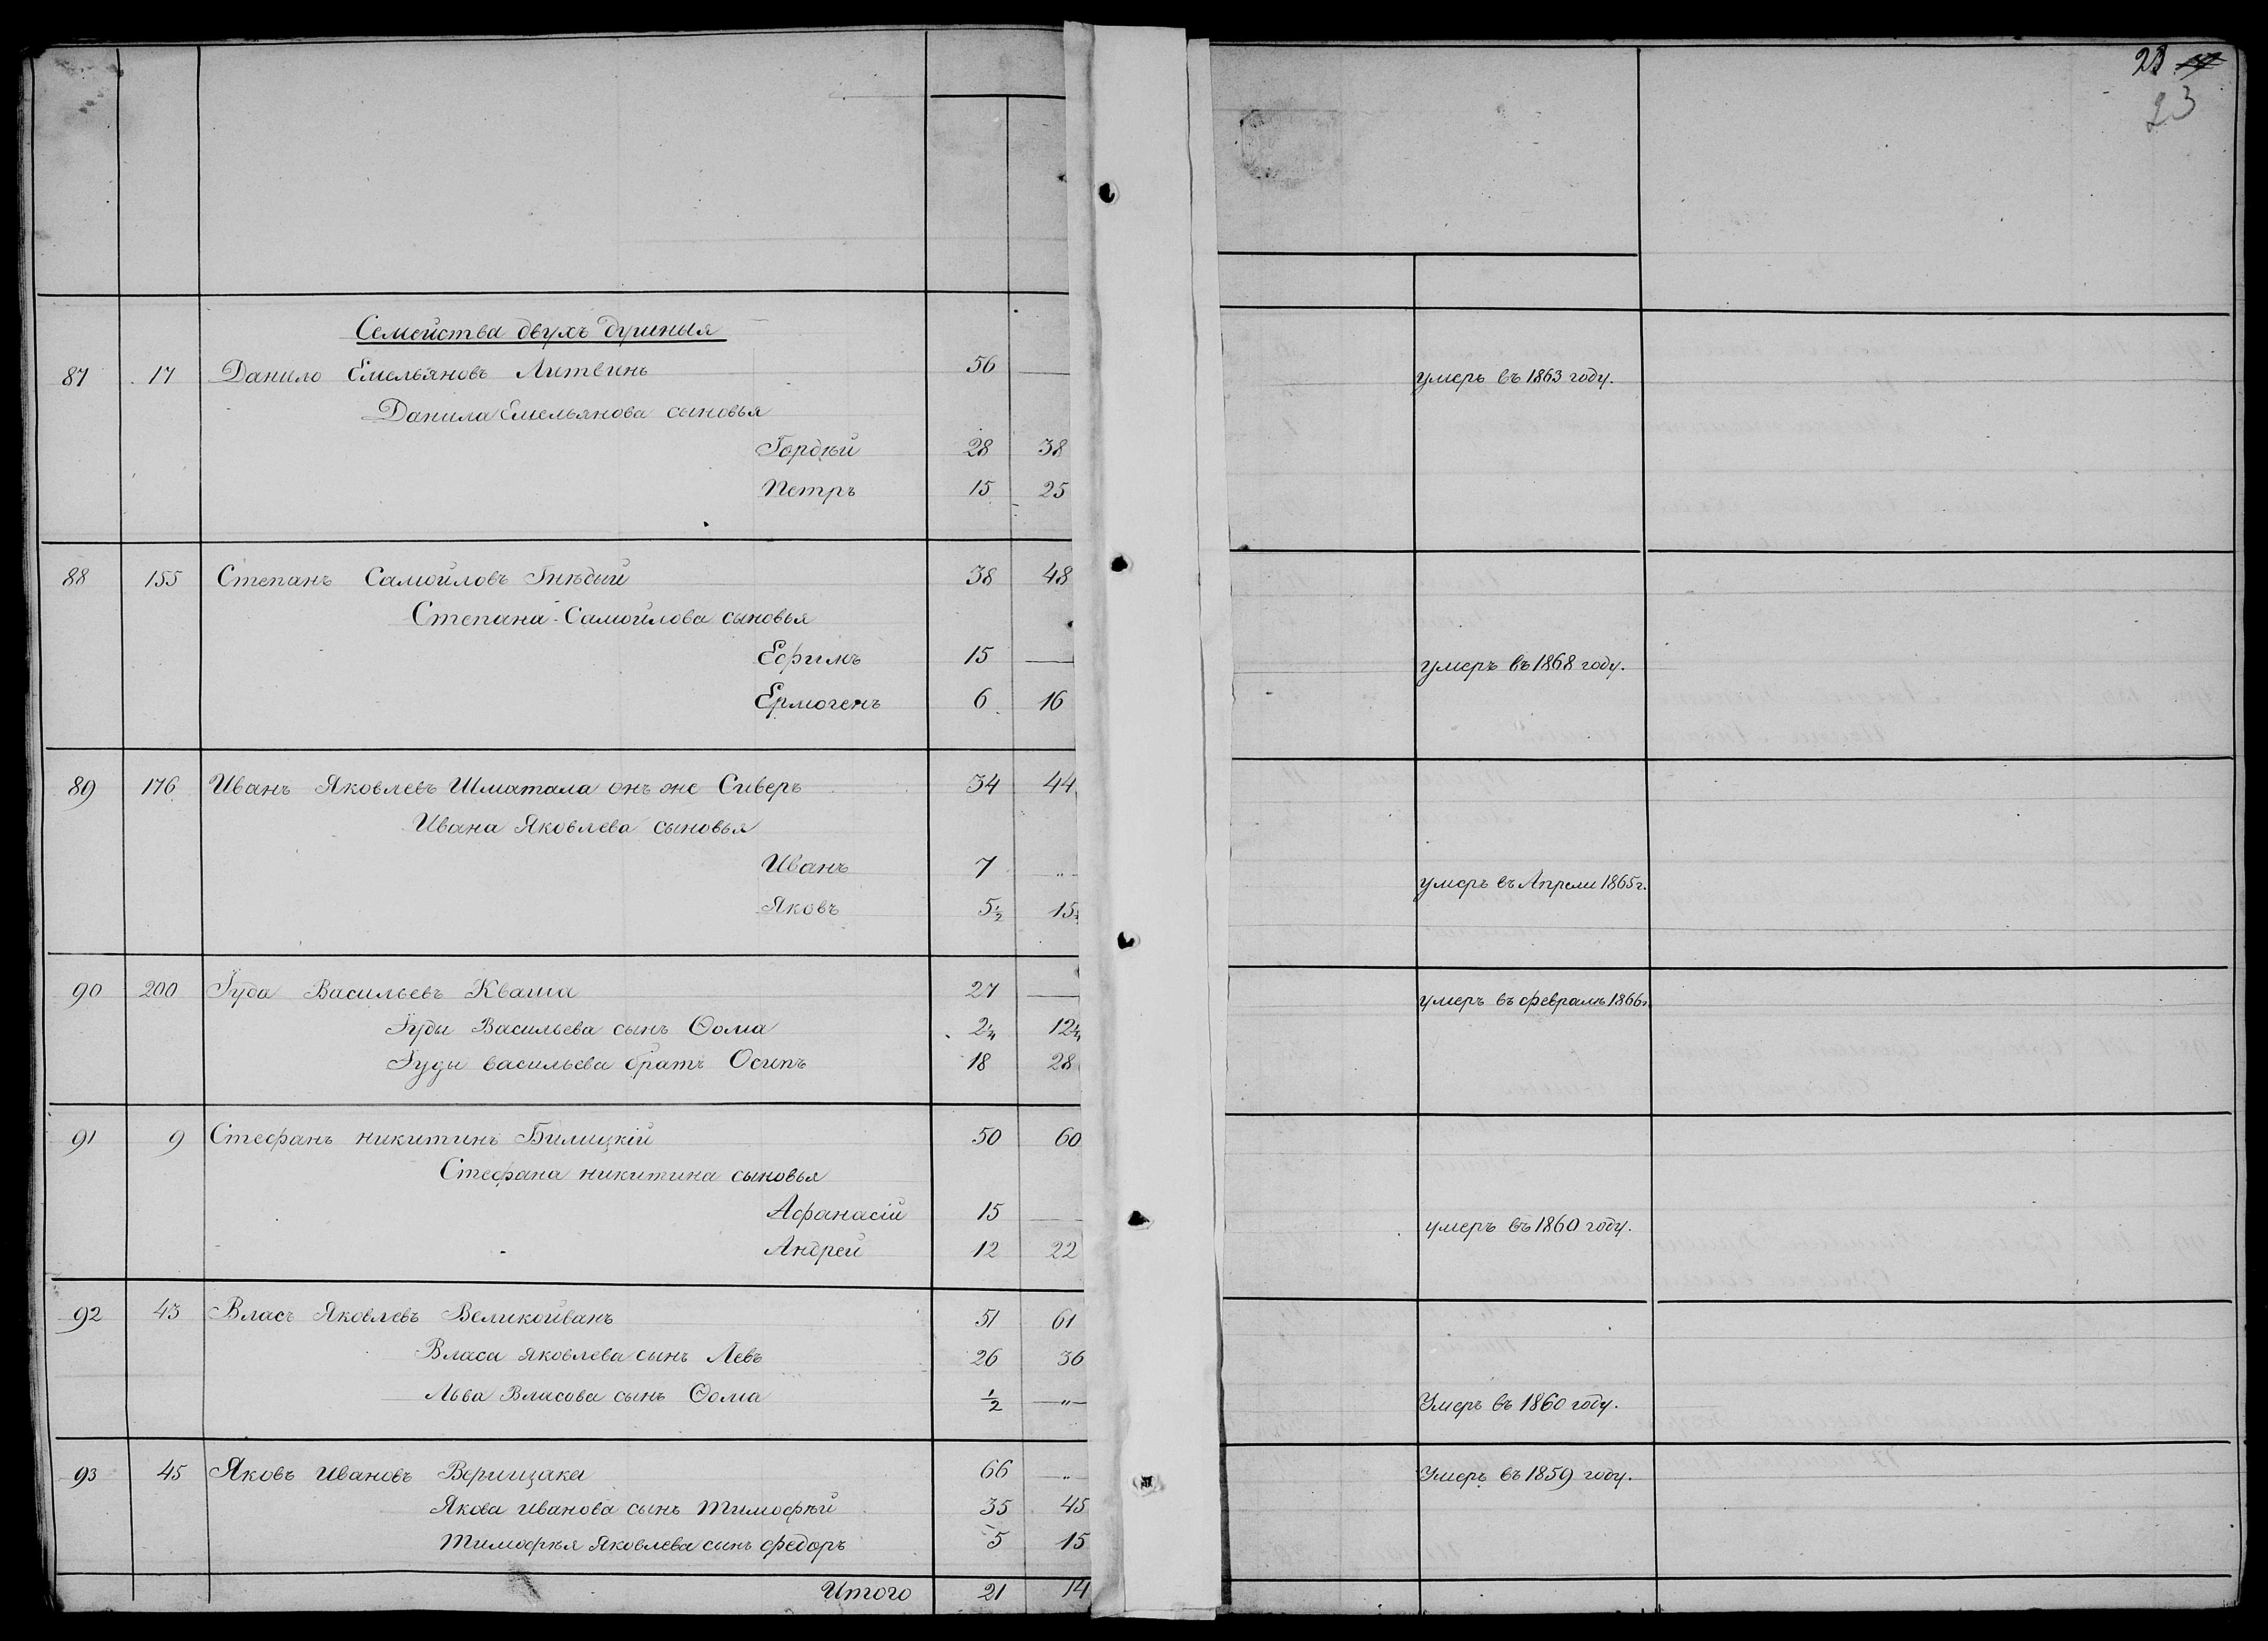 23
Семейства двухъ душныя
87 17 Данило Емельяновъ Литвинъ 56 — умеръ въ 1863 году.
Данила Емельянова сыновья
Гордѣй 28 38
Петръ 15 25
88 155 Степанъ Самойловъ Гнѣдый 38 48
Степана Самойлова сыновья
Ефимъ 15 — умеръ въ 1868 году.
Ермогенъ 6 16
89 176 Иванъ Яковлевъ Шматала онъ же Сиверъ 34 44
Ивана Яковлева сыновья
Иванъ 7 — умеръ въ Апрели 1865 г.
Яковъ 5½ 15½
90 200 Іуда Васильевъ Кваша 27 — умеръ въ февралѣ 1866 г.
Іуды Васильева сынъ Ѳома 2¼ 12¼
Іуды васильева братъ Осипъ 18 28
91 9 Стефанъ никитинъ Билицкій 50 60
Стефана никитина сыновья
Афанасій 15 — умеръ въ 1860 году.
Андрей 12 22
92 43 Власъ Яковлевъ Великоиванъ 51 61
Власа Яковлева сынъ Левъ 26 36
Льва Власова сынъ Ѳома ½ —„— Умеръ въ 1860 году.
93 45 Яковъ Ивановъ Вершцака 66 — Умеръ въ 1859 году.
Якова иванова сынъ Тимофѣй 35 45
Тимофѣя Яковлева сынъ Федоръ 5 15
Итого 21 14